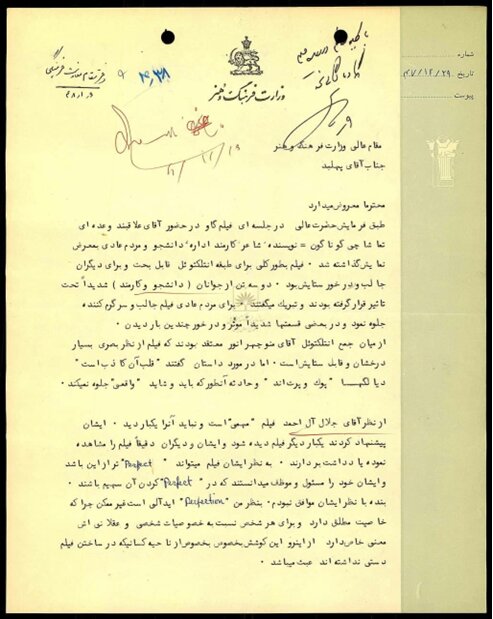 شماره
تاریخ ۴۷/۱۲/۲۹
پیوست
وزارت فرهنگ و هنر
۴۰۳۸
مقام عالی وزارت فرهنگ و هنر
جناب آقای پهلبد
محترما معروض میدارد
طبق فرمایش حضرت عالی در جلسه ای فیلم گاو در حضور آقای علاقبند وعده ای
تماشاچی گوناگون = نویسنده٬ شاعر کارمند اداره٬ دانشجو و مردم عادی بمعرض
نمایش گذاشته شد. فیلم بطور کلی برای طبقه انتلکتوئل قابل بحث و برای دیگران
جالب و در خور ستایش بود. دو سه تن از جوانان ( دانشجو و کارمند ) شدیداً تحت
تاثیر قرار گرفته بودند و تبریک میگفتند. برای مردم عادی فیلم جالب و سرگرم کننده
جلوه نمود و در بعضی قسمتها شدیداً موثر و در خور چندین بار دیدن.
از میان جمع انتلکتوئل آقای منوچهر انور معتقد بودند که فیلم از نظر بصری بسیار
درخشان و قابل ستایش است. اما در مورد داستان گفتند "قلب آن کاذب است"
دیالگها "پوک و پرت اند" و حادثه آنطور که باید و شاید "واقعی" جلوه نمیکند.
از نظر آقای جلال آل احمد فیلم "مهمی" است و نباید آنرا یکبار دید. ایشان
پیشنهاد کردند یکبار دیگر فیلم دیده شود و ایشان و دیگران دقیقاً فیلم را مشاهده
نموده یادداشت بردارند. به نظر ایشان فیلم میتواند "Perfect" تر از این باشد
و ایشان خود را مسئول و موظف میدانستند که در "Perfect" کردن آن سهیم باشند.
بنده با نظر ایشان موافق نبودم. بنظر من "Perfection" ایدآلی است غیر ممکن چرا که
خاصیت مطلق دارد و برای هر شخص نسبت به خصوصیات شخصی و عقلانی اش
معنی خاص دارد از اینرو این کوشش بخصوص بخصوص از ناحیه کسانیکه در ساختن فیلم
دستی نداشته اند عبث میباشد.